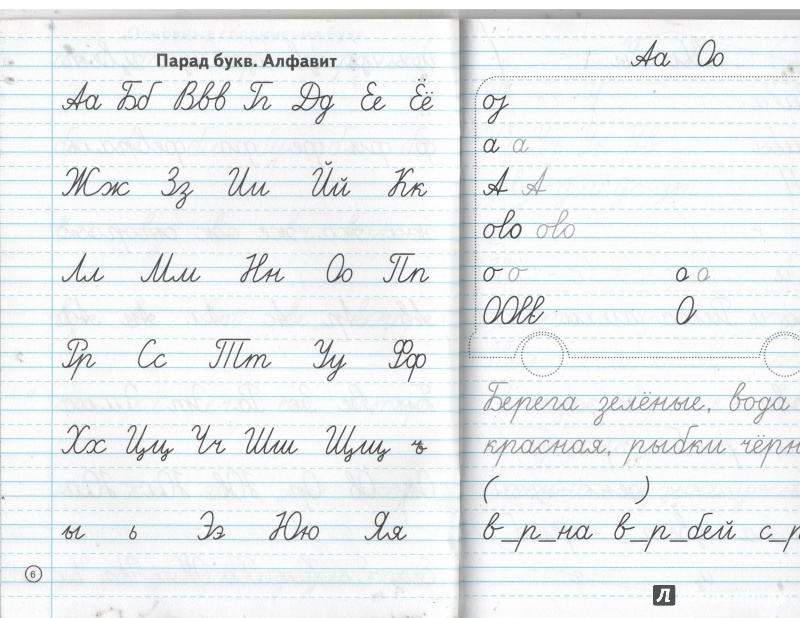 Парад букв. Алфавит
Аа Бб Ввв Гг Дд Ее Ёё
Жж Зз Ии Йй Кк
Лл Мм Нн Оо Пп
Рр Сс Тт Уу Фф
Хх Цц Чч Шш Щщ ъ
ы ь Ээ Юю Яя
6
Аа Оо
а а
А А
ово ово
о о а а
О
Берега зелёные, вода
красная, рыбки чёрн
( )
в_р_на в_р_бей с_р
Л